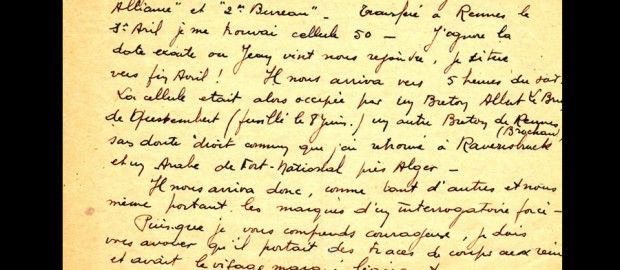 Alliance" et "2e Bureau" - Transféré à Rennes le
3 Avril je me trouvai cellule 50 - J'ignore la
date exacte où Jean vint nous rejoindre, je situe
vers fin Avril ! Il nous arriva vers 5 heures du soir.
La cellule était alors occupée par un Breton Albert Le
de Questembert (fusillé le 8 Juin.) un autre Breton de Rennes
sans doute droit commun que j'ai retrouvé à Ravensbruck
et un Arabe de Fort-National près Alger -
Il nous arriva donc, comme tant d'autres et nous
même portant les marques d'un interrogatoire forcé -
Puisque je vous comprends courageux, je dois
vous avouer qu'il portait des traces de coups aux reins
et avait le visage marqué